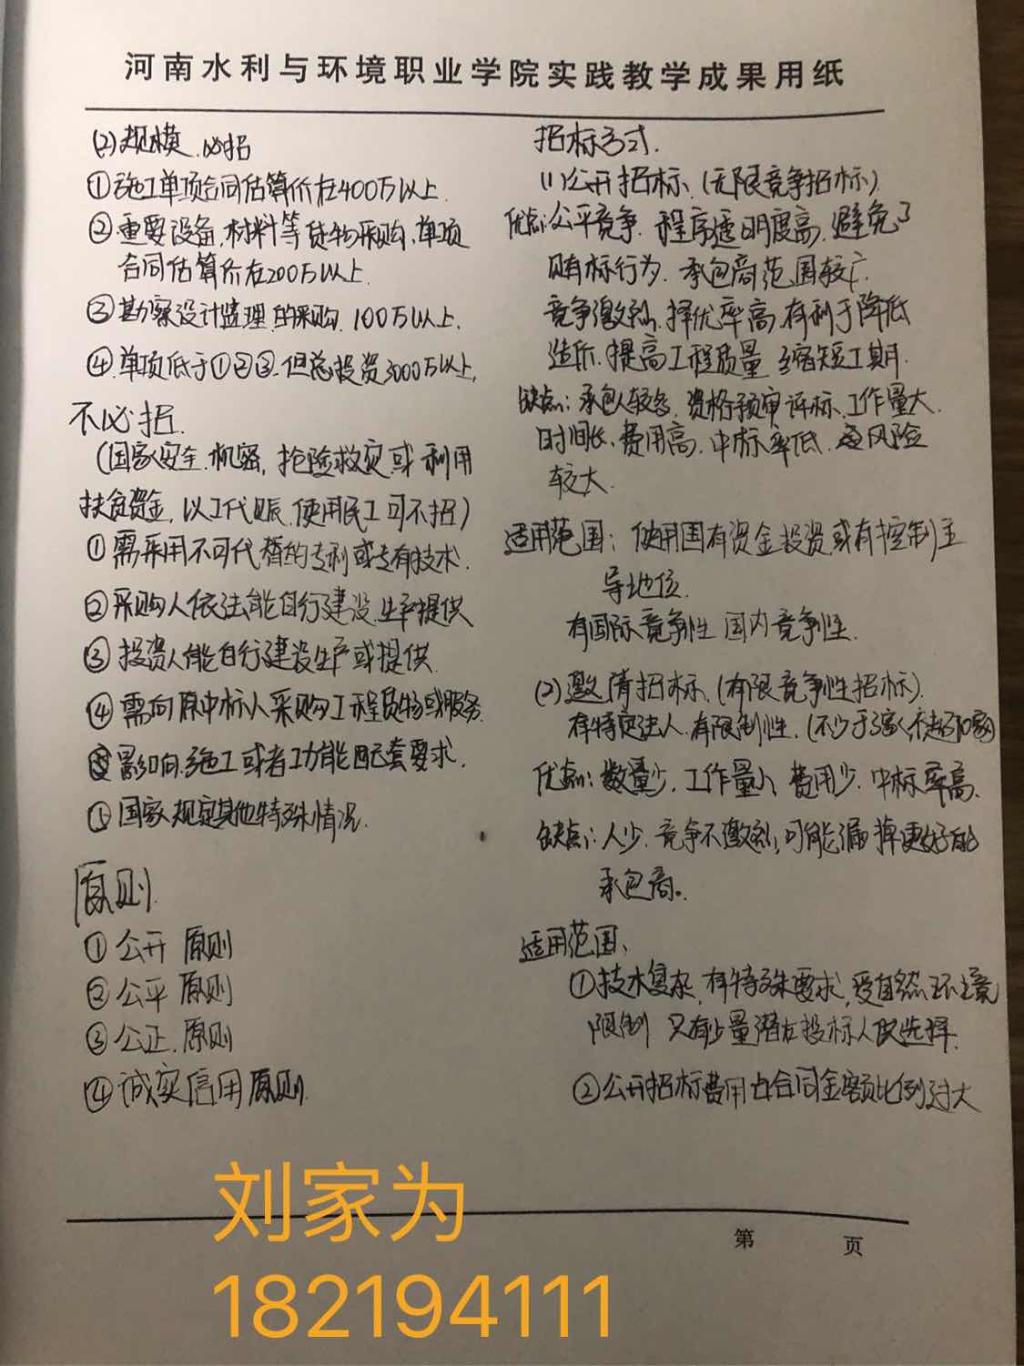 河南水利与环境职业学院实践教学成果用纸
(2)规模.必招
①施工单项合同估算价在400万以上.
②重要设备.材料等货物采购,单项
合同估算价在200万以上.
③勘察设计监理的采购.100万以上.
④.单项低于①②③.但总投资3000万以上.
不必招.
(国家安全.机密,抢险救灾或利用
扶贫资金,以工代赈.使用民工可不招)
①需采用不可代替的专利或专有技术.
②采购人依法能自行建设.生产提供
③投资人能自行建设生产或提供.
④需向原中标人采购工程货物或服务.
影响施工或者功能配套要求.
①国家规定其他特殊情况.
原则.
①公开原则
②公平原则
③公正.原则
④诚实信用原则.
招标方式.
(1)公开招标、(无限竞争招标)
优点:公平竞争.程序透明度高.避免了
贝有标行为.承包商范围较广.
竞争激烈.择优率高.有利于降低
造价.提高工程质量 缩短工期.
缺点:承包人较多.资格预审评标.工作量大.
时间长.费用高.中标率低.风险
较大.
适用范围:使用国有资金投资或有控制主
导地位.
有国际竞争性 国内竞争性.
(2)邀请招标、(有限竞争性招标).
有特定法人.有限制性.(不少于3家不超10家)
优点:数量少.工作量小 费用少.中标率高.
缺点:人少.竞争不激烈,可能漏掉更好的
承包商。
适用范围、
①技术复杂,有特殊要求,受自然环境
限制 只有少量潜在投标人供选择.
②公开招标费用占合同金额比例过大
第 页
刘家为
182194111